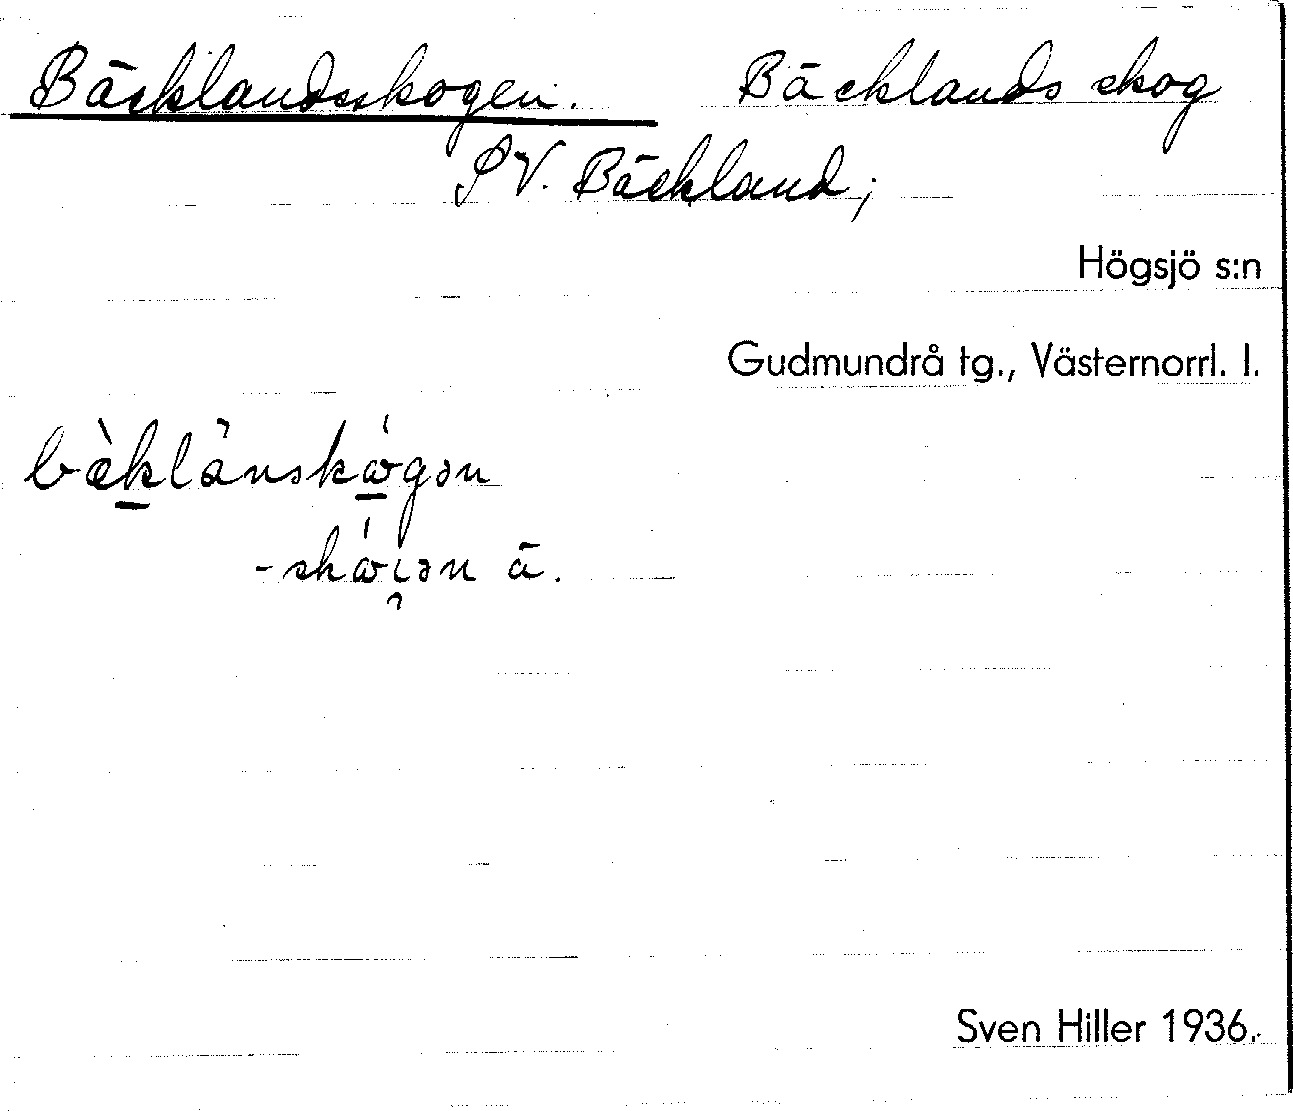 Bäcklandsskogen. Bäcklands skog
SV. Bäckland;
Högsjö s:n
Gudmundrå tg., Västernorrl. l.
bæ̀klànskɷ́gən
-skɷ́ɩən ä.
Sven Hiller 1936.